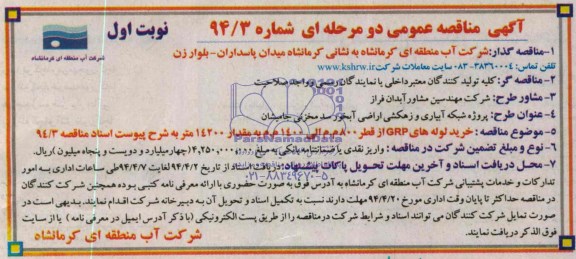 آگهی مناقصه عمومی دو مرحله ای شماره ۹۴/۳
نوبت اول
شرکت آب منطقه ای کرمانشاه
۱-مناقصه گذار:شرکت آب منطقه ای کرمانشاه به نشانی کرمانشاه میدان پاسداران-بلوار زن
تلفن تماس: ۳۸۳۶۰۰۰۴-۰۸۳ سایت معاملات شرکت www.kshrw.ir
۲-مناقصه گر: کلیه تولید کنندگان معتبر داخلی یا نمایندگان رسمی و واجد صلاحیت
۳-مشاور طرح: شرکت مهندسین مشاور آبدان فراز
۴-عنوان طرح: پروژه شبکه آبیاری و زهکشی اراضی آبخور سد مخزنی جامیشان
۵-موضوع مناقصه : خرید لوله های GRP از قطر ۸۰۰م.م الی ۱۴۰۰م.م به مقدار ۱۴۲۰۰ متر به شرح پیوست اسناد مناقصه ۹۴/۳
۶- نوع و مبلغ تضمین شرکت در مناقصه : واریز نقدی یا ضمانتنامه بانکی به مبلغ ۴,۲۵۰,۰۰۰,۰۰۰(چهارمیلیارد و دویست و پنجاه میلیون )ریال.
۷- محل دریافت اسناد و آخرین مهلت تحویل پاکات پیشنهاد: دریافت اسناد از تاریخ ۹۴/۴/۲ لغایت ۹۴/۴/۷طی ساعات اداری به امور
تدارکات و خدمات پشتیبانی شرکت آب منطقه ای کرمانشاه به آدرس فوق به صورت حضوری با ارائه معرفی نامه کتبی بوده همچنین شرکت کنندگان
در مناقصه حداکثر تا پایان وقت اداری مورخ ۹۴/۴/۲۰ مهلت دارند نسبت به تکمیل اسناد و تحویل آن به دبیرخانه شرکت اقدام نمایند. بدیهی است در
صورت تمایل شرکت کنندگان می توانند اسناد و شرایط شرکت در مناقصه را از طریق پست الکترونیکی (با ذکر آدرس ایمیل در معرفی نامه ) یا از سایت
فوق الذکر دریافت نمایند.
شرکت آب منطقه ای کرمانشاه
۰۲۱-۸۸۳۴۹۶۷۰-۵